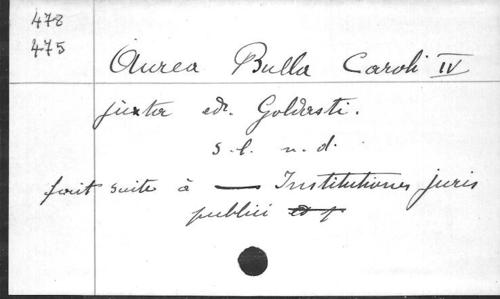 478
475
Aurea Bulla Caroli IV
juxta ed. Goldasti.
s. l. n. d.
fait suite à — Institutiones juris
publici ed p